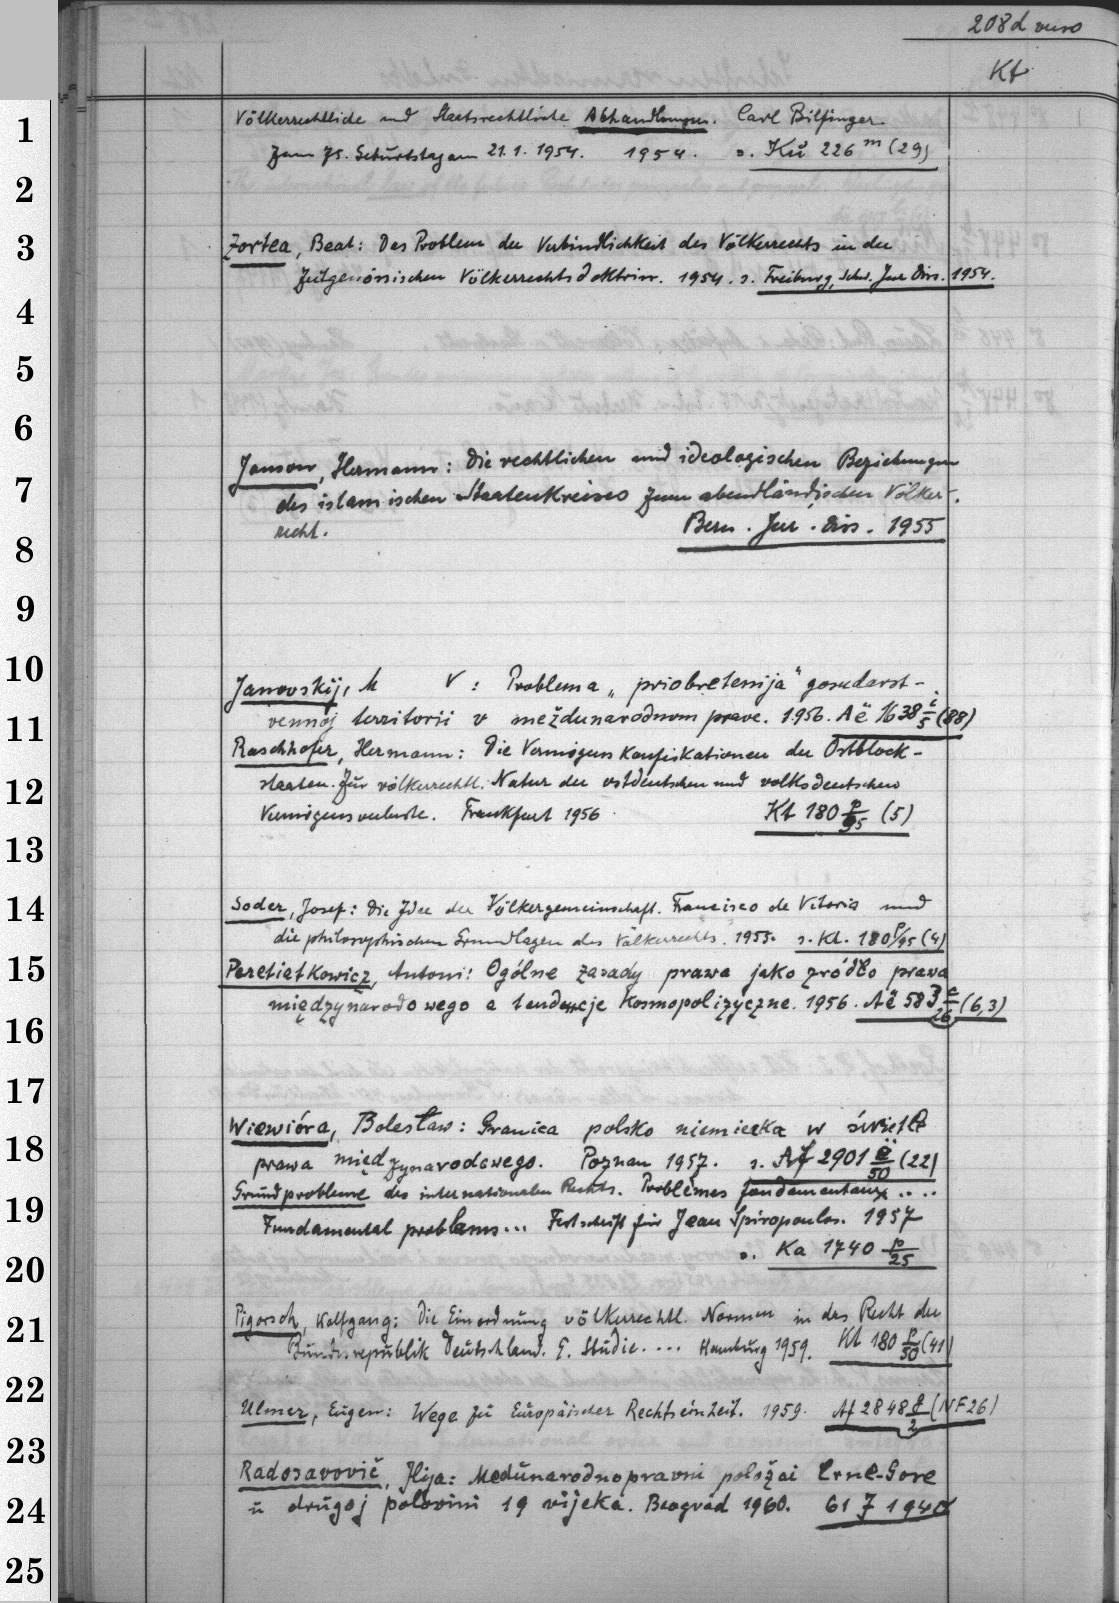 208d verso
Kt
1 Völkerrechtliche und Staatsrechtliche Abhandlungen. Carl Bilfinger.
zum 75. Geburtstag am 21.1.1954. 1954. s. Kü 226 m (29)
2
3 Zortea, Beat: Das Problem der Verbindlichkeit des Völkerrechts in der
zeitgenössischen Völkerrechtsdoktrin. 1954. s. Freiburg, Schw. Jur Diss. 1954.
4
5
6
Janson, Hermann: Die rechtlichen und ideologischen Beziehungen
7 des islamischen Staatenkreises zum abendländischen Völker-
recht. Bern. Jur. Diss. 1955
8
9
10 Janovskij, M V: Problema „priobretenija" gosudarst-
11 vennoj territorii v meždunarodnom prave. 1956. Aë 1638 i/5 (88)
Raschhofer, Hermann: Die Vermögenskonfiskationen der Ostblock-
12 staaten. Zur völkerrechtl. Natur der ostdeutschen und volksdeutschen
Vermögensverluste. Frankfurt 1956 Kt 180 p/95 (5)
13
14 Soder, Josef: Die Idee der Völkergemeinschaft. Francisco de Vitoria und
die philosophischen Grundlagen des Völkerrechts. 1955. s. Kt. 180 p/95 (4)
15 Peretiatkowicz, Antoni: Ogólne zasady prawa jako źródło prawa
międzynarodowego a tendencje kosmopolizyczne. 1956. Aë 583 c/26 (6,3)
16
17
18 Wiewióra, Bolesław: Granica polsko niemiecka w świetle
prawa międzynarodowego. Poznan 1957. s. Af 2901 ë/50 (22)
19 Grundprobleme des internationalen Rechts. Problèmes fondamentaux ....
Fundamental problems... Festschrift für Jean Spiropoulos. 1957
20 s. Ka 1740 p/25
21 Pigorsch, Wolfgang: Die Einordnung völkerrechtl. Normen in das Recht der
Bundesrepublik Deutschland. E. Studie.... Hamburg 1959. Kt 180 p/50 (41)
22 Ulmer, Eugen: Wege zu Europäischer Rechtseinheit. 1959. Af 2848 g/2 (NF26)
23 Radosavovič, Ilija: Medunarodnopravni položai Crne-Gore
24 u drugoj polovini 19 vijeka. Beograd 1960. 61 J 1940
25